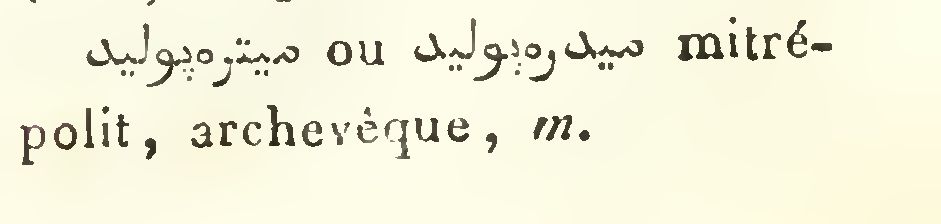 ميتره‌پوليد ou ميدره‌پوليد mitré-
polit, archevêque, m.